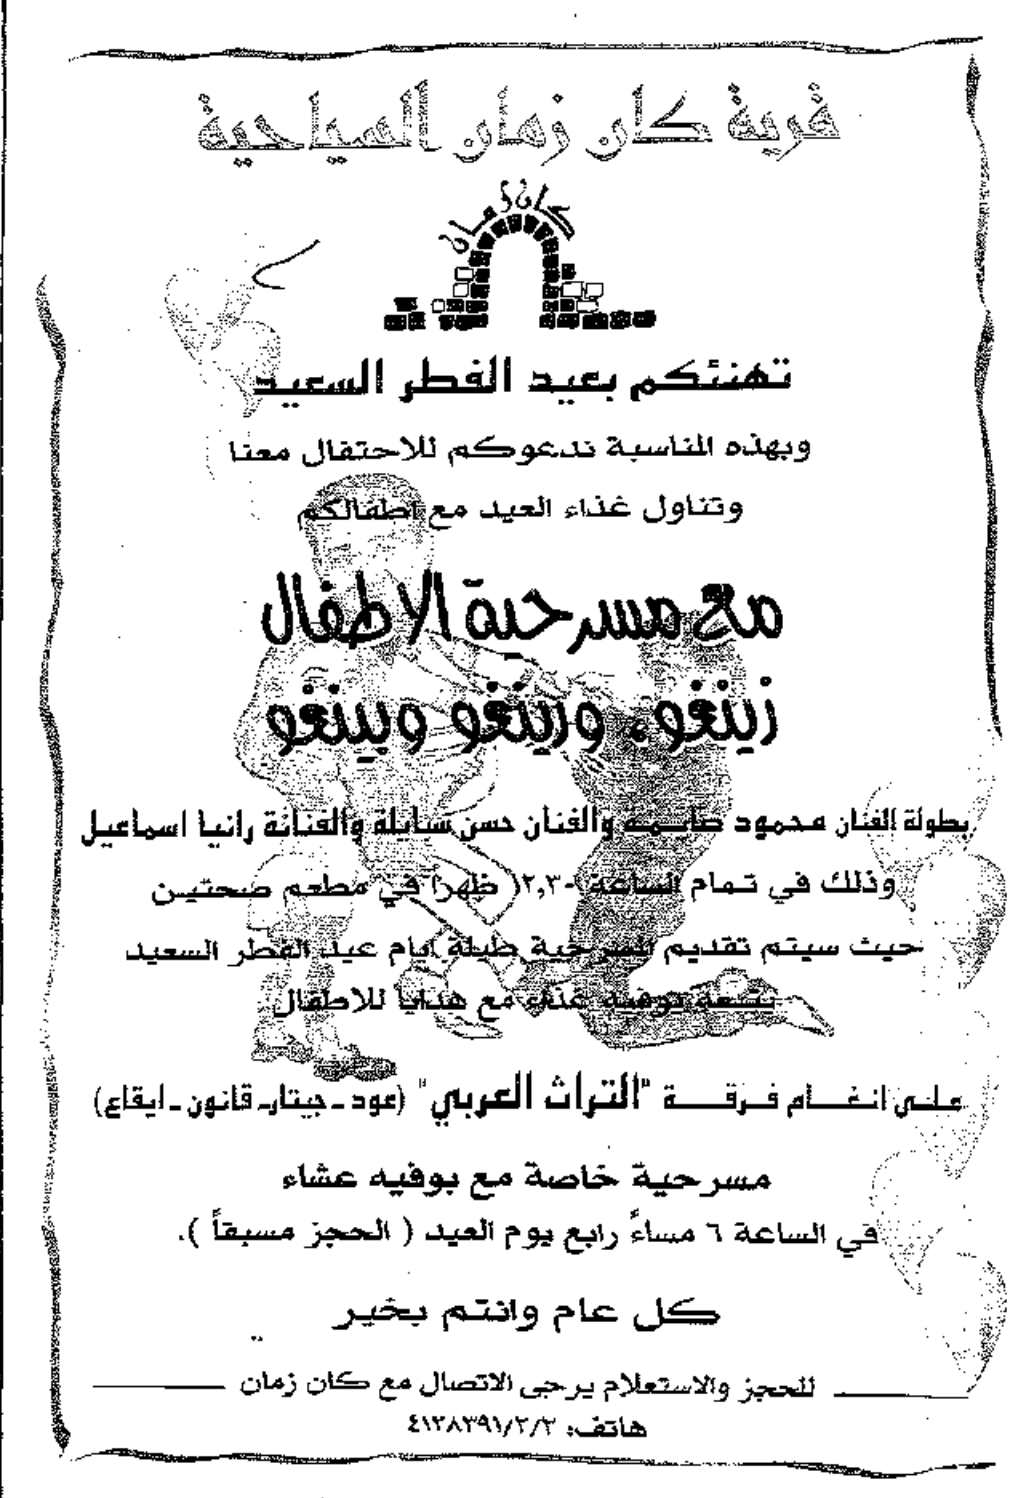 قرية كان زمان السياحية
كان زمان
تهنئكم بعيد الفطر السعيد
وبهذه المناسبة ندعوكم للاحتفال معنا
وتناول غذاء العيد مع اطفالكم
مع مسرحية الاطفال
زينغو، ورينغو وبينغو
بطولة الفنان محمود صايمة والفنان حسن سبايلة والفنانة رانيا اسماعيل
وذلك في تمام الساعة ١٢,٣٠ ظهراً في مطعم صحتيـن
حيث سيتم تقديم المسرحية طيلة ايام عيد الفطر السعيد
بوفيه غذاء مع هدايا للاطفال
على انغـام فـرقـة "التراث العربي" (عود - جيتار - قانون - ايقاع)
مسرحية خاصة مع بوفيه عشاء
في الساعة ٦ مساءً رابع يوم العيد ( الحجز مسبقاً ).
كل عام وانتم بخير
للحجز والاستعلام يرجى الاتصال مع كان زمان
هاتف: ٤١٢٨٣٩١/٢/٣